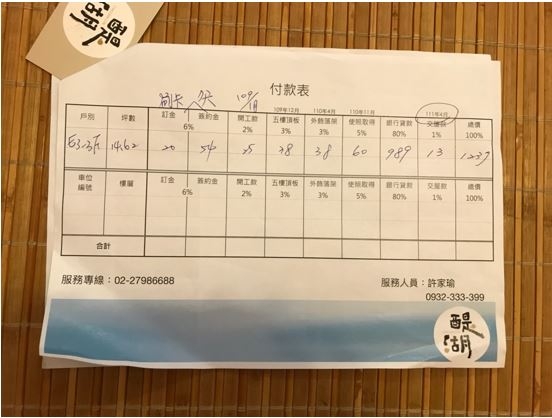 醍湖
付款表
刷卡
109/11月
109年12月 110年4月 110年11月 111年4月
戶別 坪數 訂金 簽約金 開工款 五樓頂板 外飾落架 使照取得 銀行貸款 交屋款 總價
6% 2% 3% 3% 5% 80% 1% 100%
E3.3F 14.62 20 54 25 38 38 60 989 13 1237
車位編號 樓層 訂金 簽約金 開工款 五樓頂板 外飾落架 使照取得 銀行貸款 交屋款 總價
6% 2% 3% 3% 5% 80% 1% 100%
合計
服務專線：02-27986688 服務人員：許家瑜
0932-333-399
醍湖